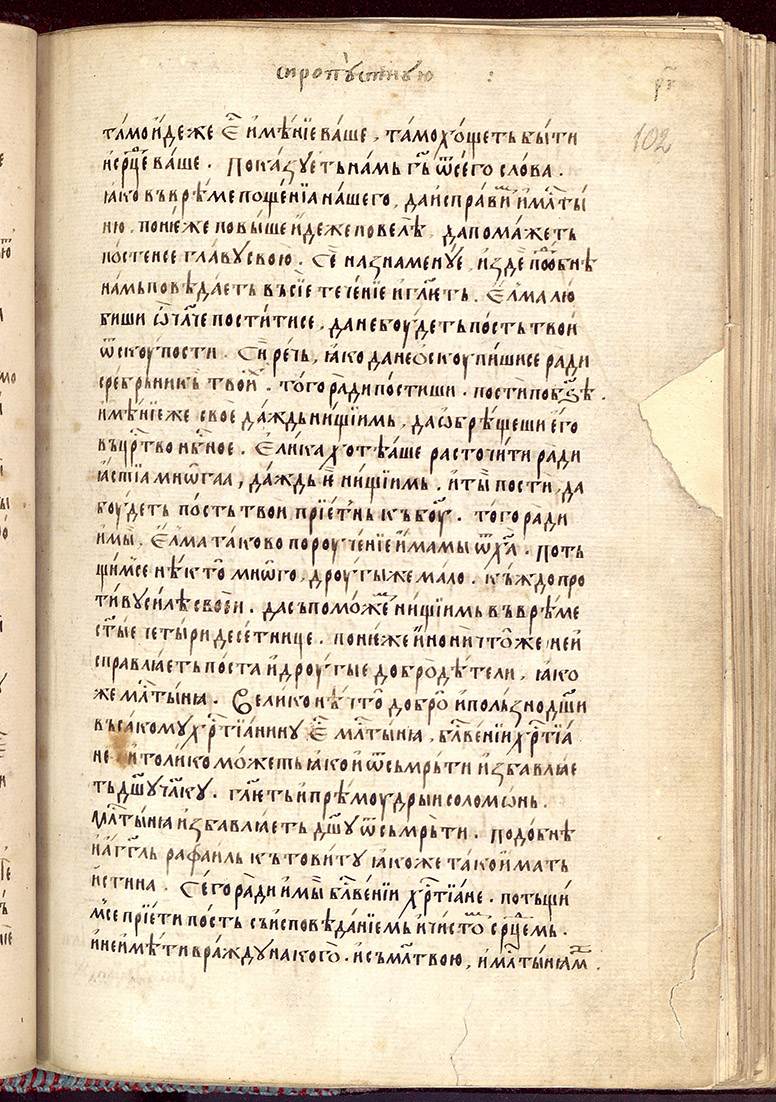 сиропꙋстнꙋю :
рг
102
та́мо и҆де́же є҆с҄ и҆мѣ́нїе ва́ше , та́мо хо́щетъ бы́ти
и҆ ср҃це ва́ше . Пока́зꙋетъ на́мь гь҃ ѿ сего̀ сло́ва .
ꙗ҆ко въ врѣ́ме поще́нїа на́шего , да и҆спра́ви и҆ млⷭ҇ты́
ню . поне́же повы́ше и҆де́же повелѣ̀ , да пома́жетъ
постеи се гла́вꙋ свою̀ . Сѐ назнаменꙋ́е , и҆ здѐ подо́бнѣ
на́мь повѣ́даеть въ сїѐ тече́нїе и҆ гл҃етъ . Є҆лма лю́
биши ѽ чл҃че пости́ти се , да не бꙋ́деть по́сть тво́и
ѿ скꙋ́пости . Си́ речь , ꙗ҆ко да не ѡскꙋпи́ши се ради
сре́брьникь твои́х . того̀ ра́ди пости́ши . пости по бз҃ѣ .
и҆мѣ́нїе же своѐ да́ждь ни́щїимь , да ѡ҆брѣ́щеши є҆го̀
въ црⷭ҇тво нбⷭ҇ное . Є҆ли́ка хотѣ́аше расточи́ти ра́ди
ꙗ҆стїа мнѡ́гаа , да́ждь и҆̀ ни́щїимь . и҆ ты̀ пости , да
боу́деть по́сть твои прїе́тнь къ бо҃у . того̀ ра́ди
и҆ мы̀ . Є҆лма таково̀ пороуче́нїе и҆́мамы ѿ хⷭ҇а . пот
щи́м се нѣ́кто мнѡ́го , дроугы́ же ма́ло . къ́ждо про
ти́вꙋ си́лѣ свое́и . да съпомо́жем ни́щїимь въ врѣ́ме
ст҃ые четы́ридесе́тнице . поне́же и҆́но ничто́же не и
справлꙗ́еть поста̀ и҆ дроу́гые добродѣ́тели , ꙗ҆ко
же млⷭ҇тынꙗ . Вели́ко нѣ́что добро̀ и҆ по́льзно дш҃и
въса́комꙋ хрⷭ҇тїа́нинꙋ є҆с҄ млⷭ҇тынꙗ , блⷭ҇ве́нїи хрⷭ҇тїа
не и҆ толи́ко мо́жеть ꙗ҆ко и҆ ѿ съмръ́ти и҆збавлꙗ́е
ть дш҃ꙋ чл҃кꙋ . гл҃еть и҆ прѣмоу́дрыи соломѡ́нь .
млⷭ҇тынꙗ и҆збавлꙗ́еть дш҃ꙋ ѿ съмръ́ти . подо́бнѣ
и҆ а҆гг҃ль рафаи́ль къ тови́тꙋ ꙗ҆коже тако и҆́мать
и҆́стина . Сего̀ ра́ди и҆ мы̀ блⷭ҇ве́нїи хрⷭ҇тїа́не . потьщи́
мсе прїе́ти по́сть съ и҆сповѣ́данїемь и҆ чи́стом ср҃цемь .
и҆ не и҆мѣ́ти вра́ждꙋ на кого̀ . и҆ съ мл҃твою , и҆ млⷭ҇тынꙗм .